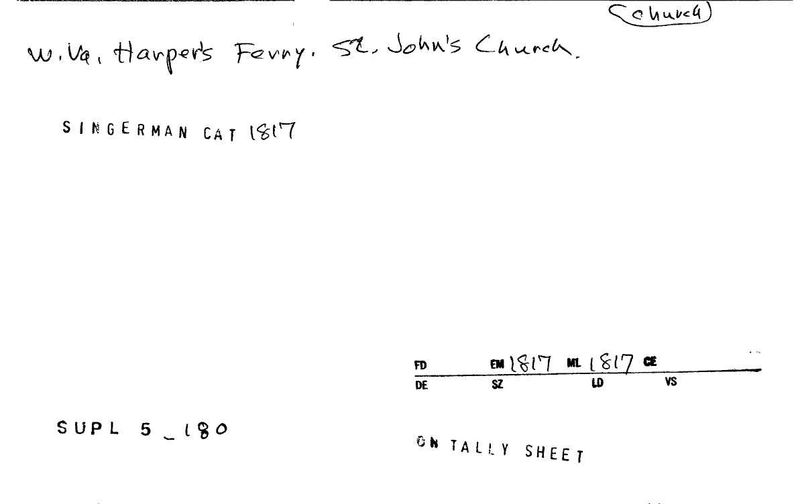 (church)
W.Va. Harper's Ferry. St. John's Church.
SINGERMAN CAT 1817
FD EM 1817 ML 1817 CE
DE SZ LD VS
SUPL 5_180
ON TALLY SHEET